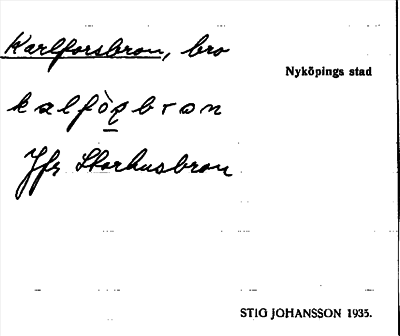 Karlforsbron, bro
Nyköpings stad
kalfòr̲bron
Jfr Storhusbron
STIG JOHANSSON 1935.